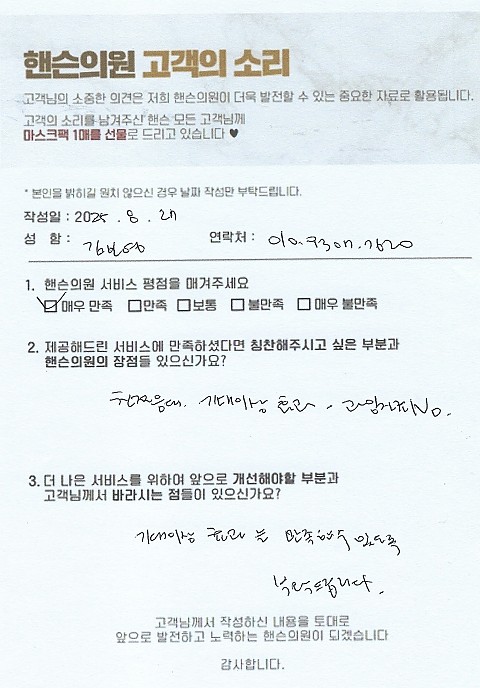 핸슨의원 고객의 소리
고객님의 소중한 의견은 저희 핸슨의원이 더욱 발전할 수 있는 중요한 자료로 활용됩니다.
고객의 소리를 남겨주신 핸슨 모든 고객님께
마스크팩 1매를 선물로 드리고 있습니다 ♥
* 본인을 밝히길 원치 않으신 경우 날짜 작성만 부탁드립니다.
작성일 : 2025 . 8 .
성 함 : 연락처 : 010.
1. 핸슨의원 서비스 평점을 매겨주세요
☑매우 만족 □만족 □보통 □불만족 □매우 불만족
2. 제공해드린 서비스에 만족하셨다면 칭찬해주시고 싶은 부분과
핸슨의원의 장점들 있으신가요?
기대이상 효과 . No.
3. 더 나은 서비스를 위하여 앞으로 개선해야할 부분과
고객님께서 바라시는 점들이 있으신가요?
기대이상 효과 는 만족할수 있도록
부탁드립니다.
고객님께서 작성하신 내용을 토대로
앞으로 발전하고 노력하는 핸슨의원이 되겠습니다
감사합니다.